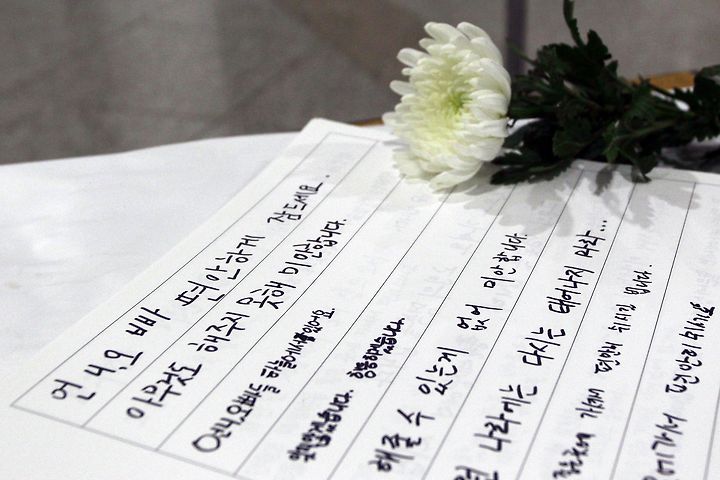 언니, 오빠 편안하게 잠드세요.
아무것도 해주지 못해 미안합니다.
언니오빠들 하늘에서 있어요.
않겠습니다.
해줄 수 있는게 없어 미안합니다.
나라에는 다시는 태어나지 마라...
가서 편안해 지시길 빕니다.
가서 편안히 쉬시길